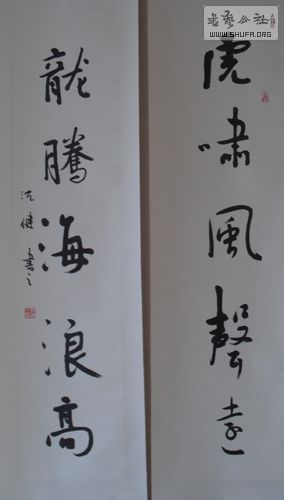 虎嘯風聲遠
龍騰海浪高
沉健書之
書藝公社
WWW.SHUFA.ORG